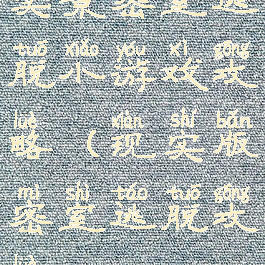 tuō xiǎo yóu xì gōng
脱小游戏攻
lüè xiàn shí bǎn
略（现实版
mì shì táo tuō gōng
密室逃脱攻